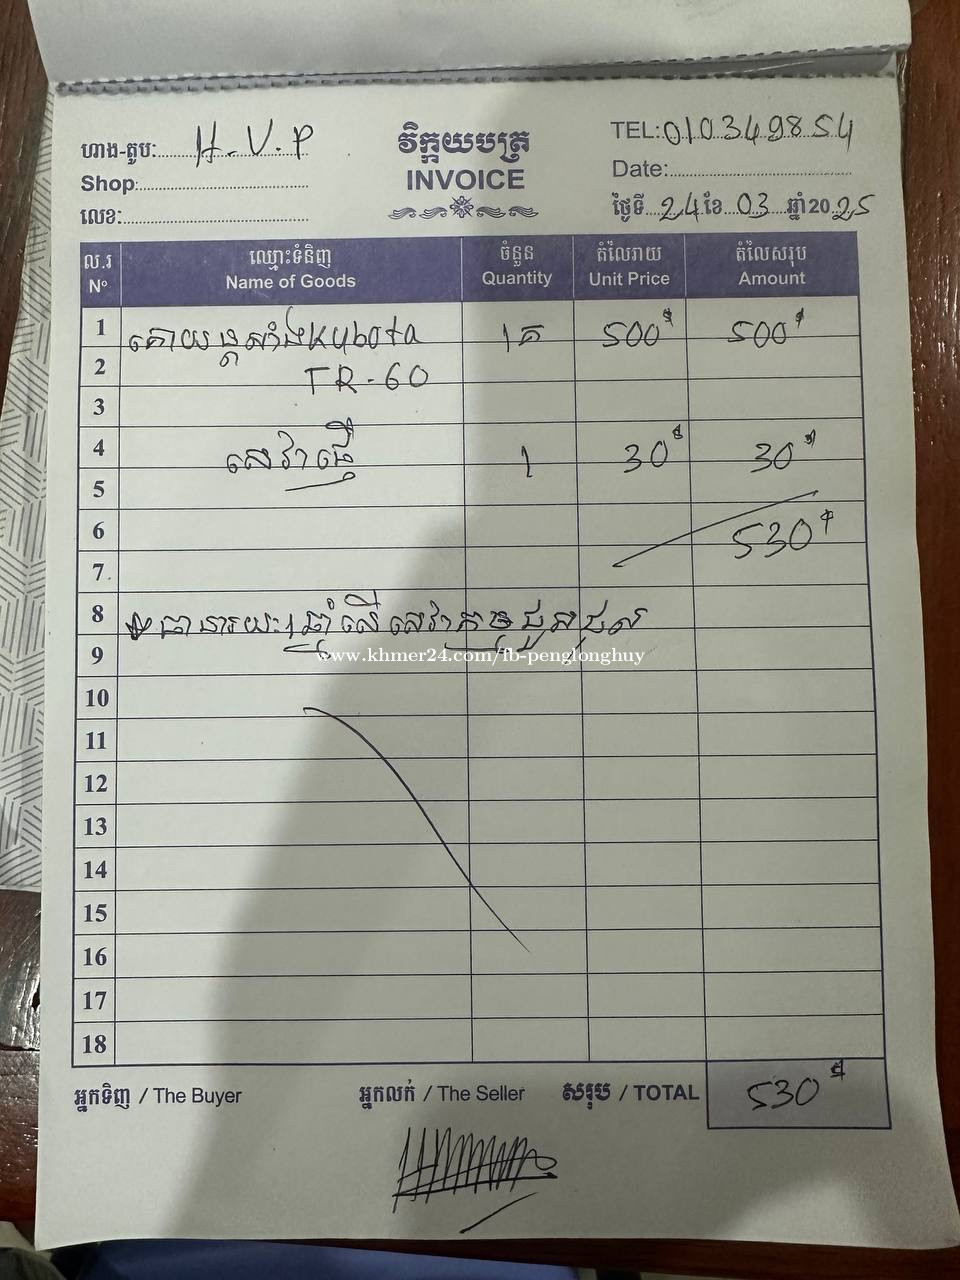 ហាង-តូប: H.V.P
Shop:
លេខ:
វិក្កយបត្រ
INVOICE
TEL: 010349854
Date:
ថ្ងៃទី 24 ខែ 03 ឆ្នាំ 2025
ល.រ ឈ្មោះទំនិញ ចំនួន តំលៃរាយ តំលៃសរុប
Nº Name of Goods Quantity Unit Price Amount
1 Kubota 1គ 500$ 500$
2 TR-60
3
4 សេវាធ្វើ 1 30$ 30$
5
6 530$
7
8 ធានារយៈ 1 ឆ្នាំ លើសេវាកម្មជួសជុល
9
www.khmer24.com/fb-penglonghuy
10
11
12
13
14
15
16
17
18
អ្នកទិញ / The Buyer អ្នកលក់ / The Seller សរុប / TOTAL 530$